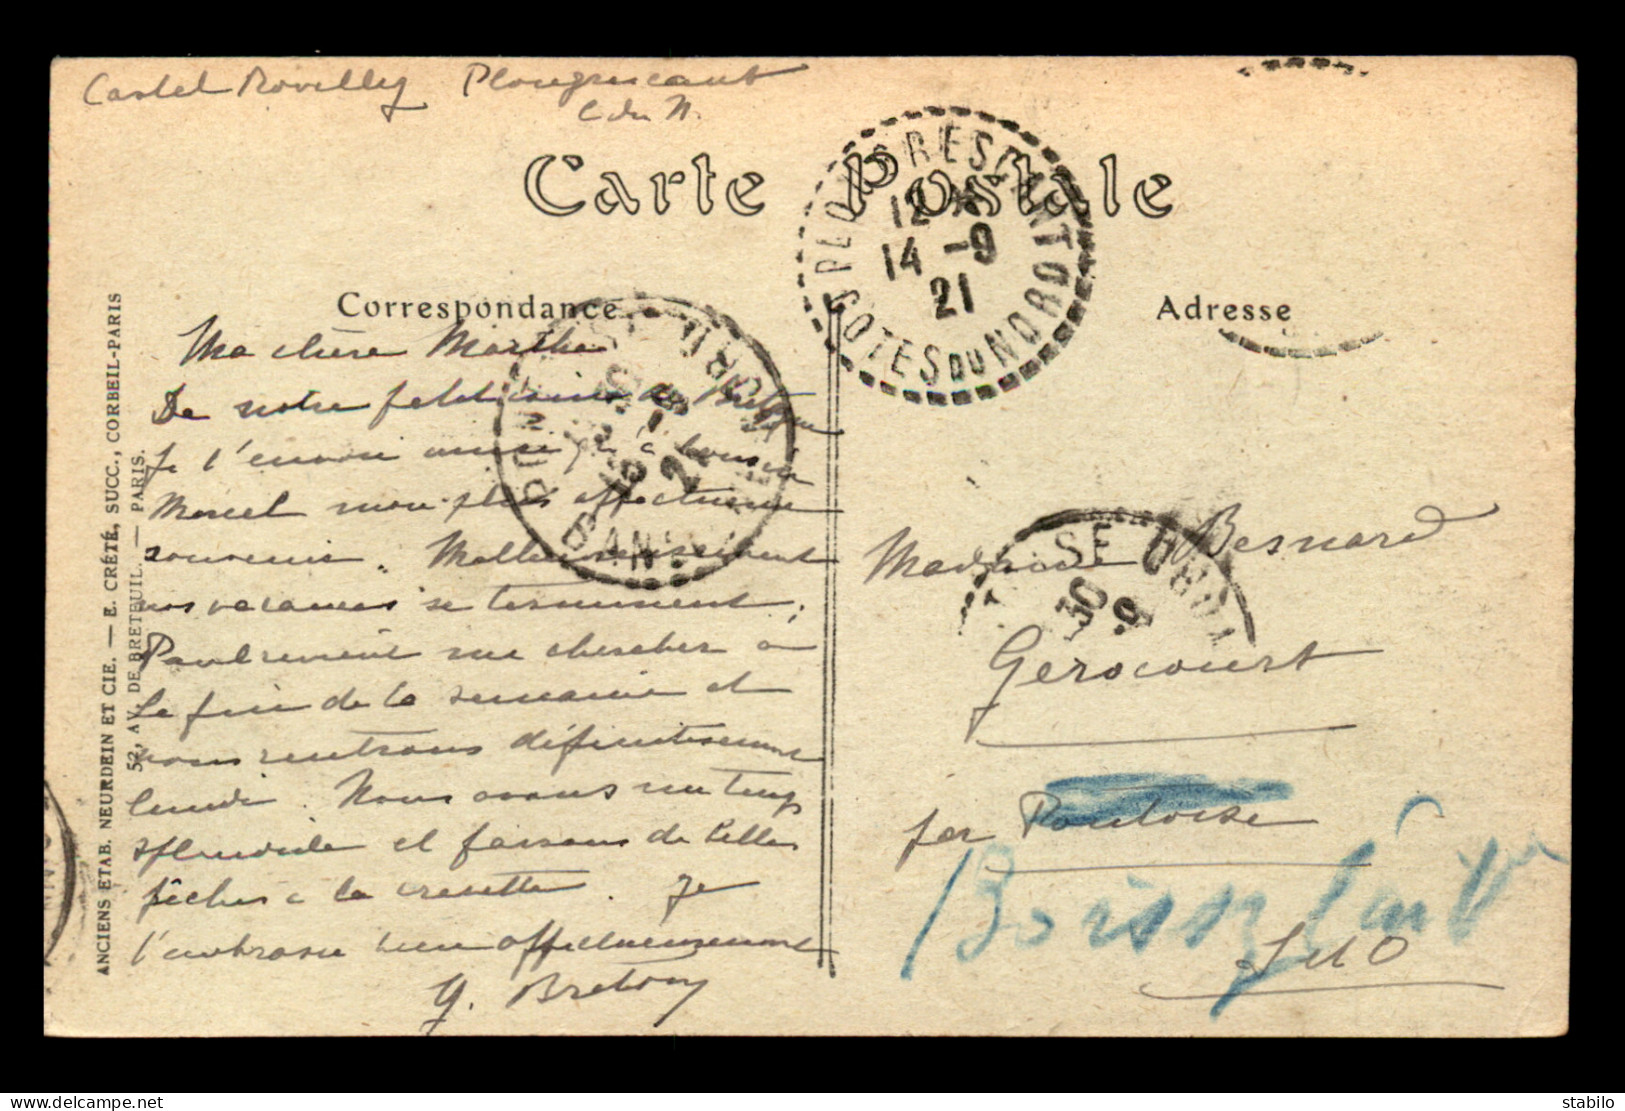 Castel Plougrescant
C du N.
Carte Postale
PLOUGRESCANT
COTES DU NORD
12
14 -9
21
Correspondance
Adresse
Ma chère Marthe
De notre petit coin de Bretagne
je t'envoie ainsi qu'à cousin
Marcel mon plus affectueux
souvenir. Malheureusement
nos vacances se terminent.
Paul revient me chercher à
la fin de la semaine et
nous rentrons définitivement
lundi. Nous avons un temps
splendide et faisons de belles
pêches à la crevette. Je
t'embrasse bien affectueusement
G. Bretony
ANCIENS ETAB. NEURDEIN ET CIE. — E. CRÉTÉ, SUCC., CORBEIL-PARIS
52, AV. DE BRETEUIL. — PARIS.
Madame Besnard
Gerocourt
par Pontoise
Boissy
S et O
OISE
30
-9
15
21
stabilo
delcampe.net